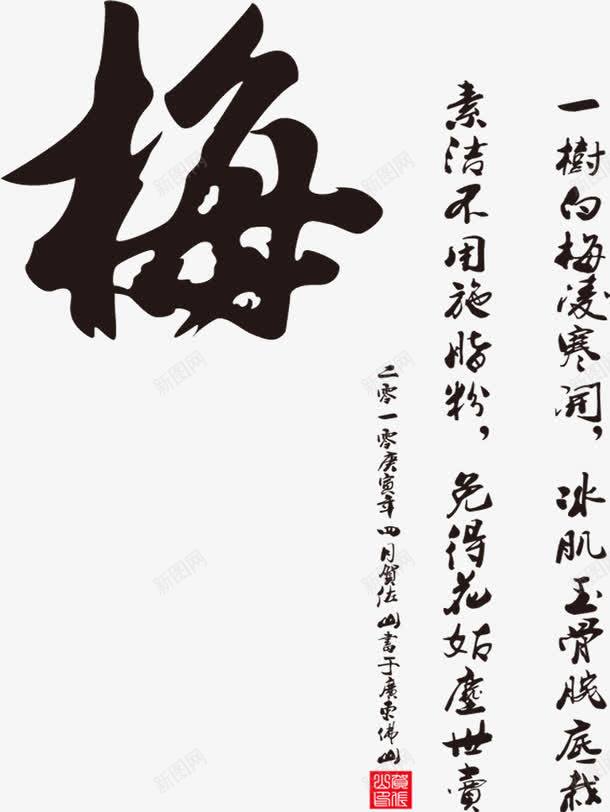 梅
一樹白梅凌寒開，冰肌玉骨腕底栽
素洁不用施脂粉，免得花姑塵世賣
二零一零庚寅年四月賀佐山書于廣東佛山